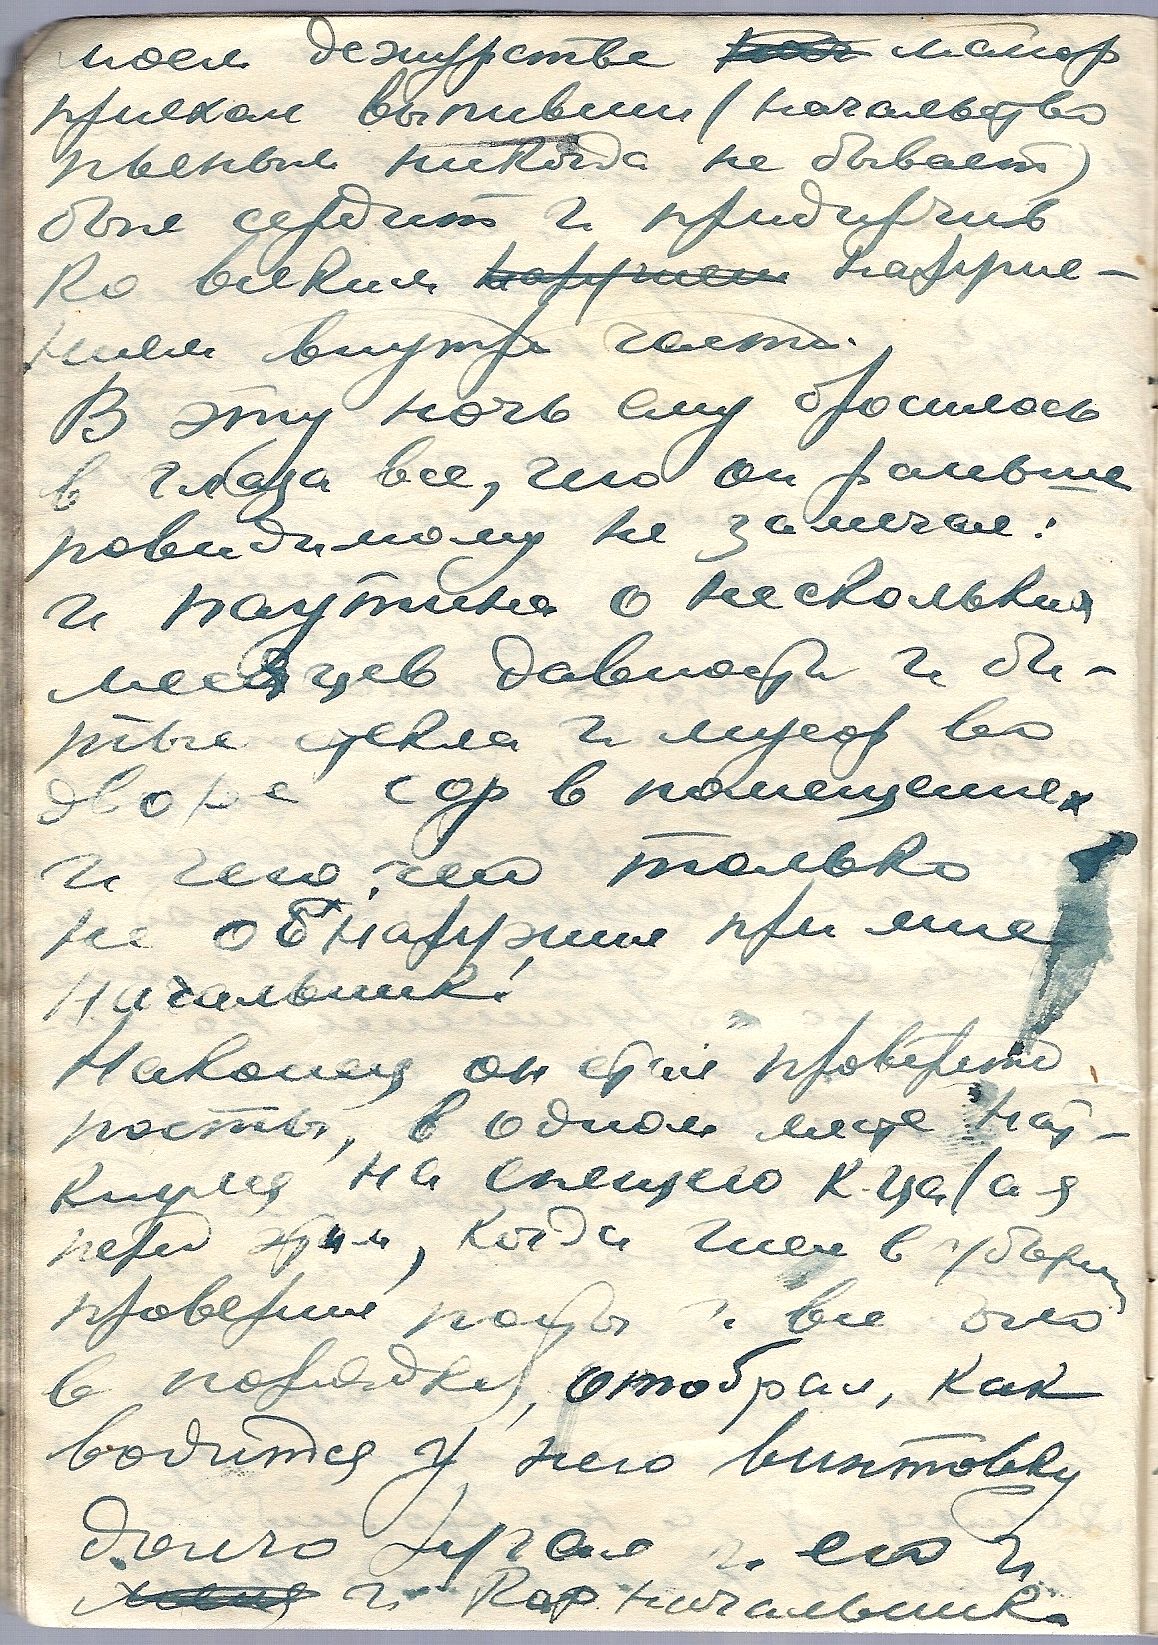 моем дежурстве майор
приехал выпивши (начальство
пьеным никогда не бывает)
был сердит и придирчив
ко всяким наруше-
ниям внутри части.
В эту ночь ему бросилось
в глаза все, что он раньше
повидимому не замечал:
и паутина о нескольких
месяцев давности и би-
тые стекла и мусор во
дворе сор в помещениех
и чего, чего только
не обнаружил при мне
начальник!
Наконец он стал проверять
посты, в одном месте нат-
кнулся на спящего к-ца (а я
перед этим, когда шел в
проверил посты и все было
в порядке), отобрал, как
водится у него винтовку
долго ругал и его и
и Кар начальника